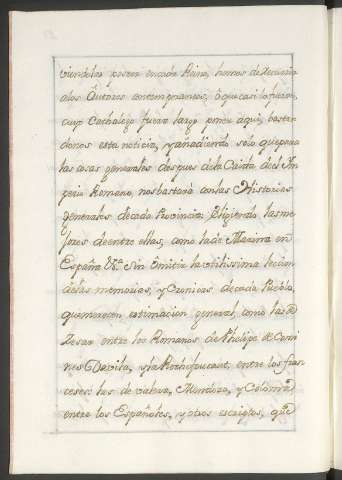 viendolas poner encada Reino, hemos de recurrir
alos Autores contemporaneos, ò que casi lo fueron,
cuyo Cathalogo fuera largo poner aqui, baste
donos esta noticia, y añadiendo sólo que para
las cosas generales despues dela Caida del Im
perio Romano, nos bastarà conlas Historias
generales decada Provincia: Eligiendo las me
jores de entre ellas, como la de Mariana en
España &.ª Sin Omitir la utilissima leccion
delas memorias, y Cronicas decada Pueblo,
que merecen estimacion general, como las de
Cesar entre los Romanos de Phelipe de Comi
nes Davila, y la Rochefoucaut, entre los fran
ceses: los de Mendoza, y Coloma
entre los Españoles, y otros escritos, que